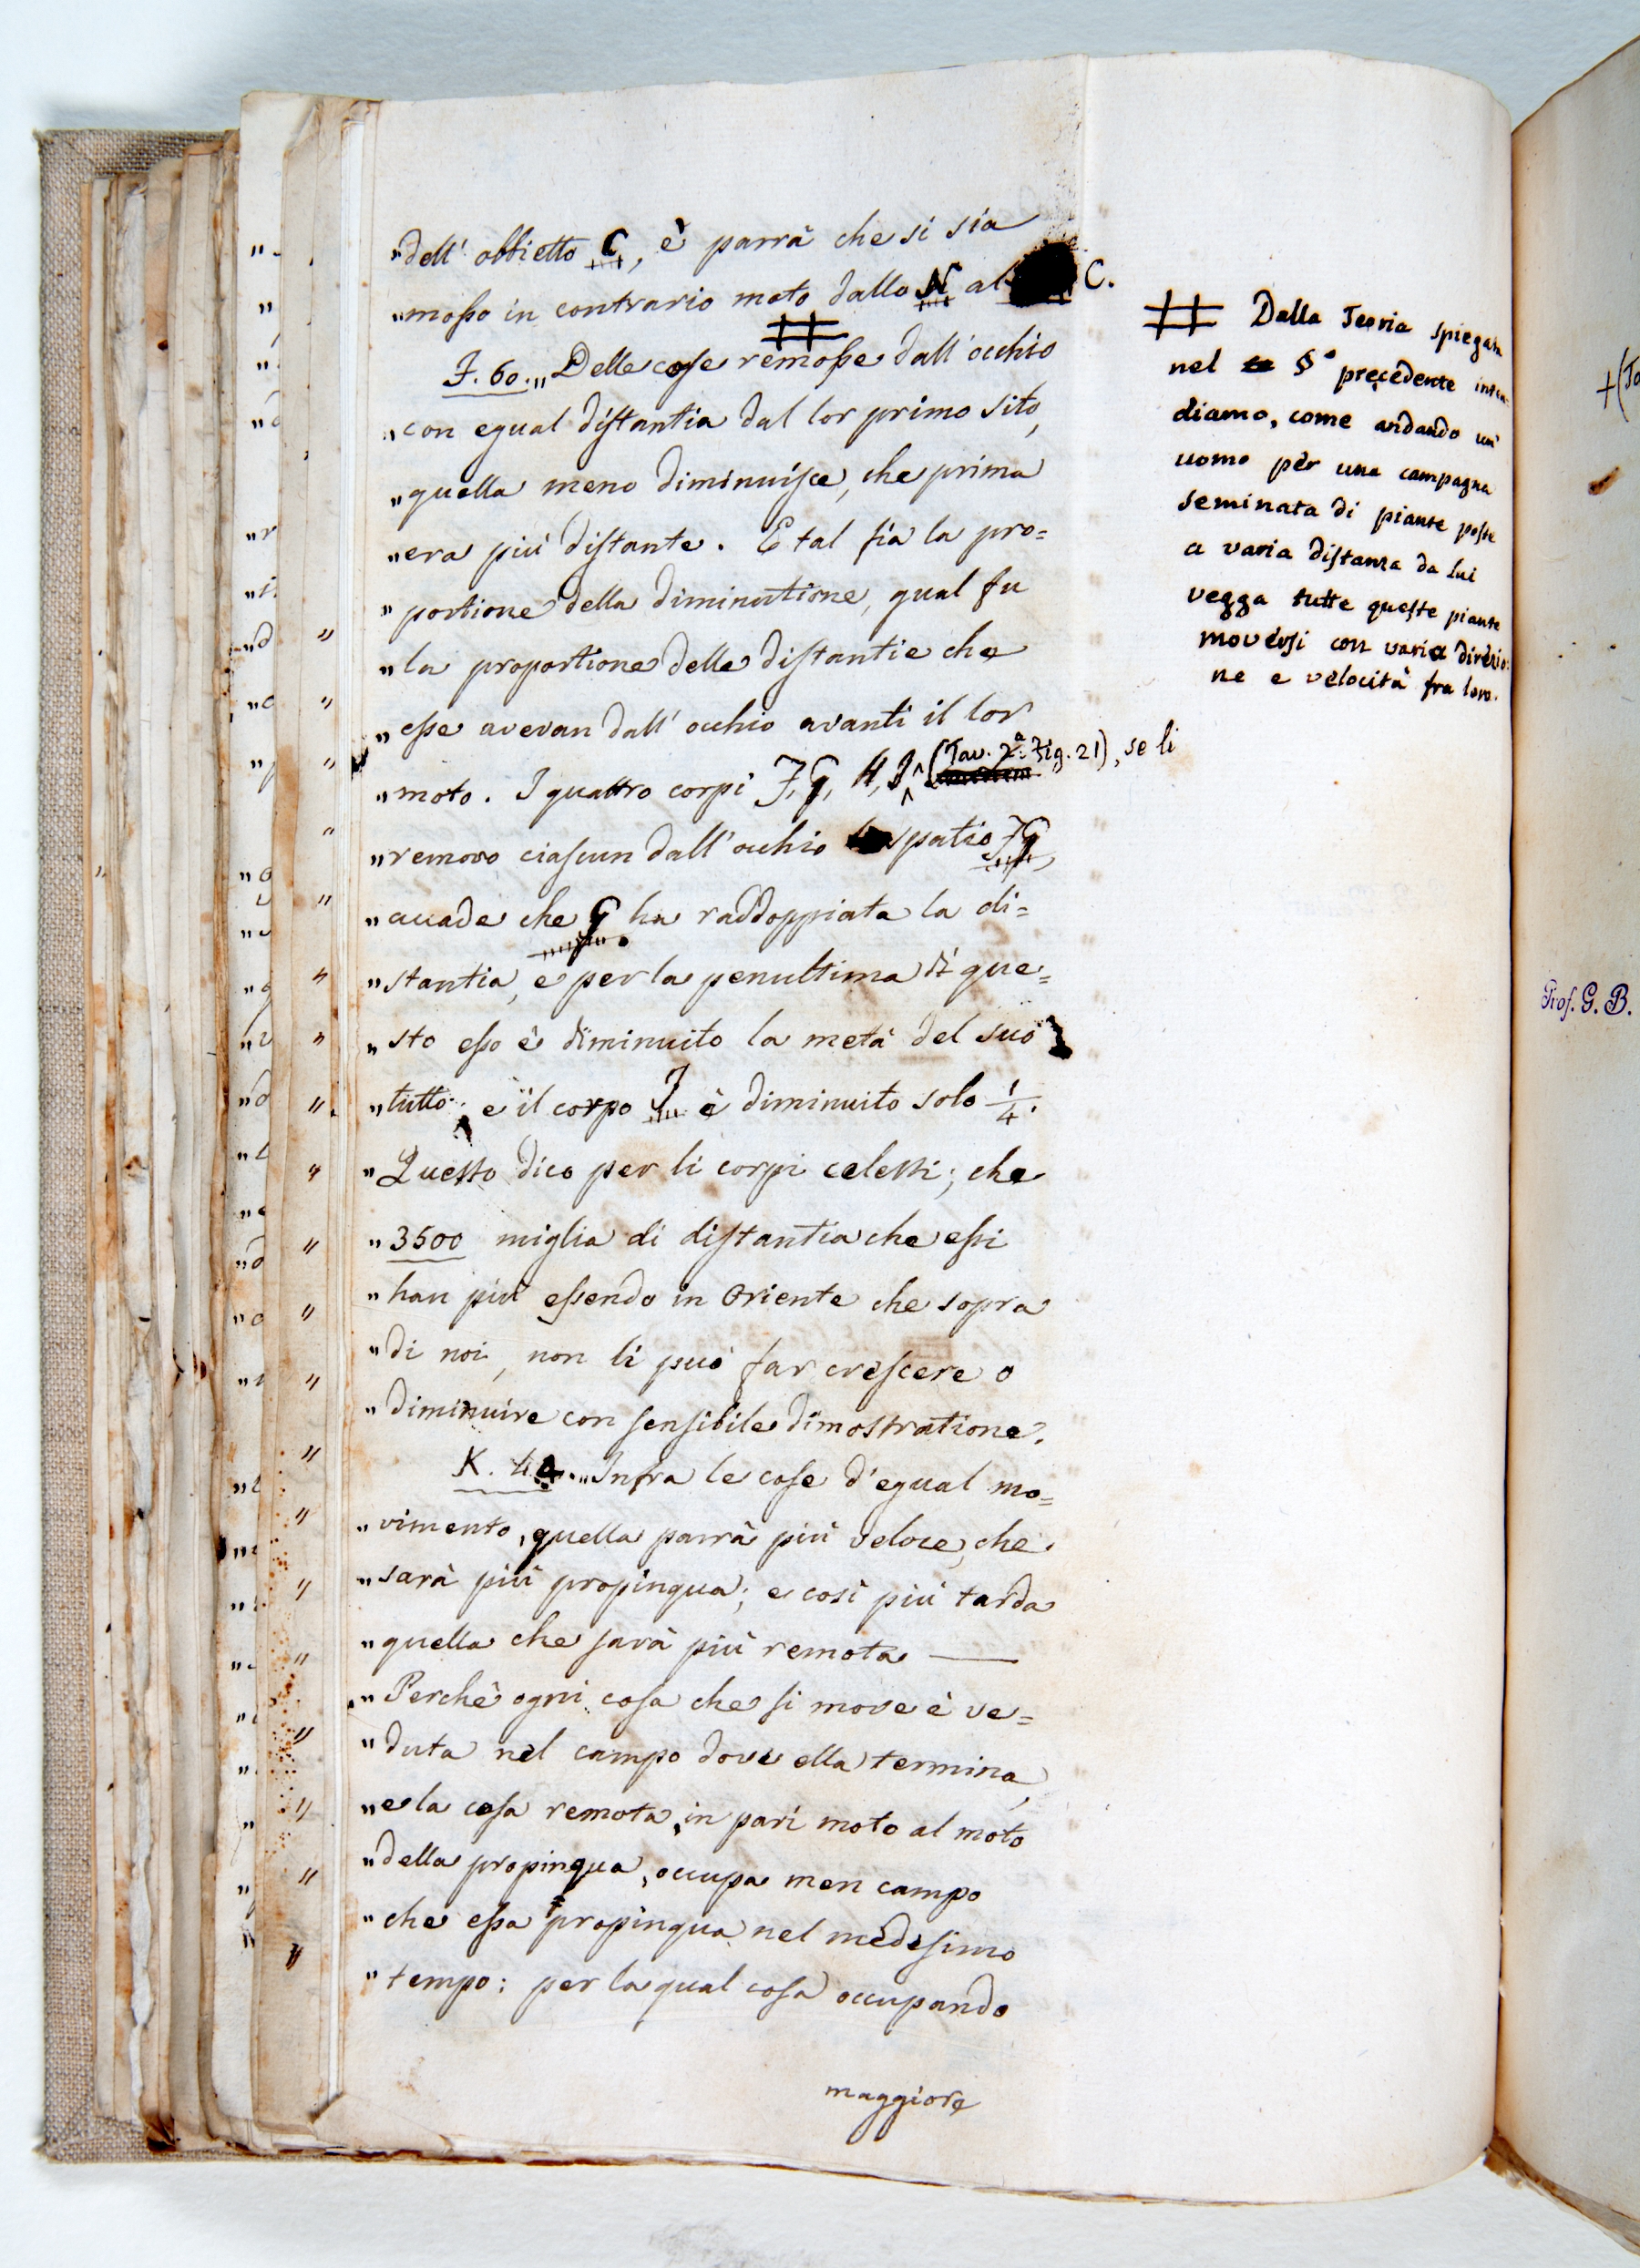 „dell' obbietto C, e parrà che si sia
„mosso in contrario moto dallo N al C.
F. 60. „Delle cose remosse dall'occhio
„con egual distantia dal lor primo sito,
„quella meno diminuisce, che prima
„era più distante. E tal fia la pro=
„portione della diminutione, qual fu
„la proportione delle distantie che
„esse avevan dall'occhio avanti il lor
„moto. I quattro corpi F, G, H, I, (Tav. 2ª. Fig. 21), se li
„removo ciascun dall'occhio lo spatio FG,
„accade che G ha raddoppiata la di=
„stantia, e per la penultima di que=
„sto esso è diminuito la metà del suo
„tutto; e il corpo I è diminuito solo 1/4.
„Questo dico per li corpi celesti; che
„3500 miglia di distantia che essi
„han più essendo in Oriente che sopra
„di noi, non li può far crescere o
„diminuire con sensibile dimostratione.
K. „Infra le cose d'egual mo=
„vimento, quella parrà più veloce, che
„sarà più propinqua; e così più tarda
„quella che sarà più remota —
„Perchè ogni cosa che si move è ve=
„duta nel campo dove ella termina,
„e la cosa remota, in pari moto al moto
„della propinqua, occupa men campo
„che essa propinqua nel medesimo
„tempo: per la qual cosa occupando
maggiore
Dalla Teoria spiegata
nel § precedente inten-
diamo, come andando un
uomo per una campagna
seminata di piante poste
a varia distanza da lui
vegga tutte queste piante
moversi con varia direzio=
ne e velocità fra loro.
Prof. G. B.